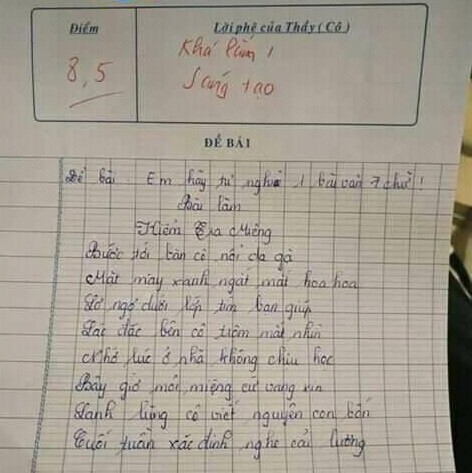 Điểm
Lời phê của Thầy (Cô)
8,5
Khá lắm !
Sáng tạo
ĐỀ BÀI
Đề bài. Em hãy tự nghĩ 1 bài văn 7 chữ !
Bài làm
Kiểm Tra Miệng
Bước tới bàn cô nổi da gà
Mặt mày xanh ngát mắt hoa hoa
Lơ ngơ dưới lớp tìm bạn giúp
Lác đác bên cô liếm mắt nhìn
Nhớ lúc ở nhà không chịu học
Bây giờ mới miệng cứ van xin
Lạnh lùng cô viết nguyên con bốn
Cuối tuần xác định nghe cải lương